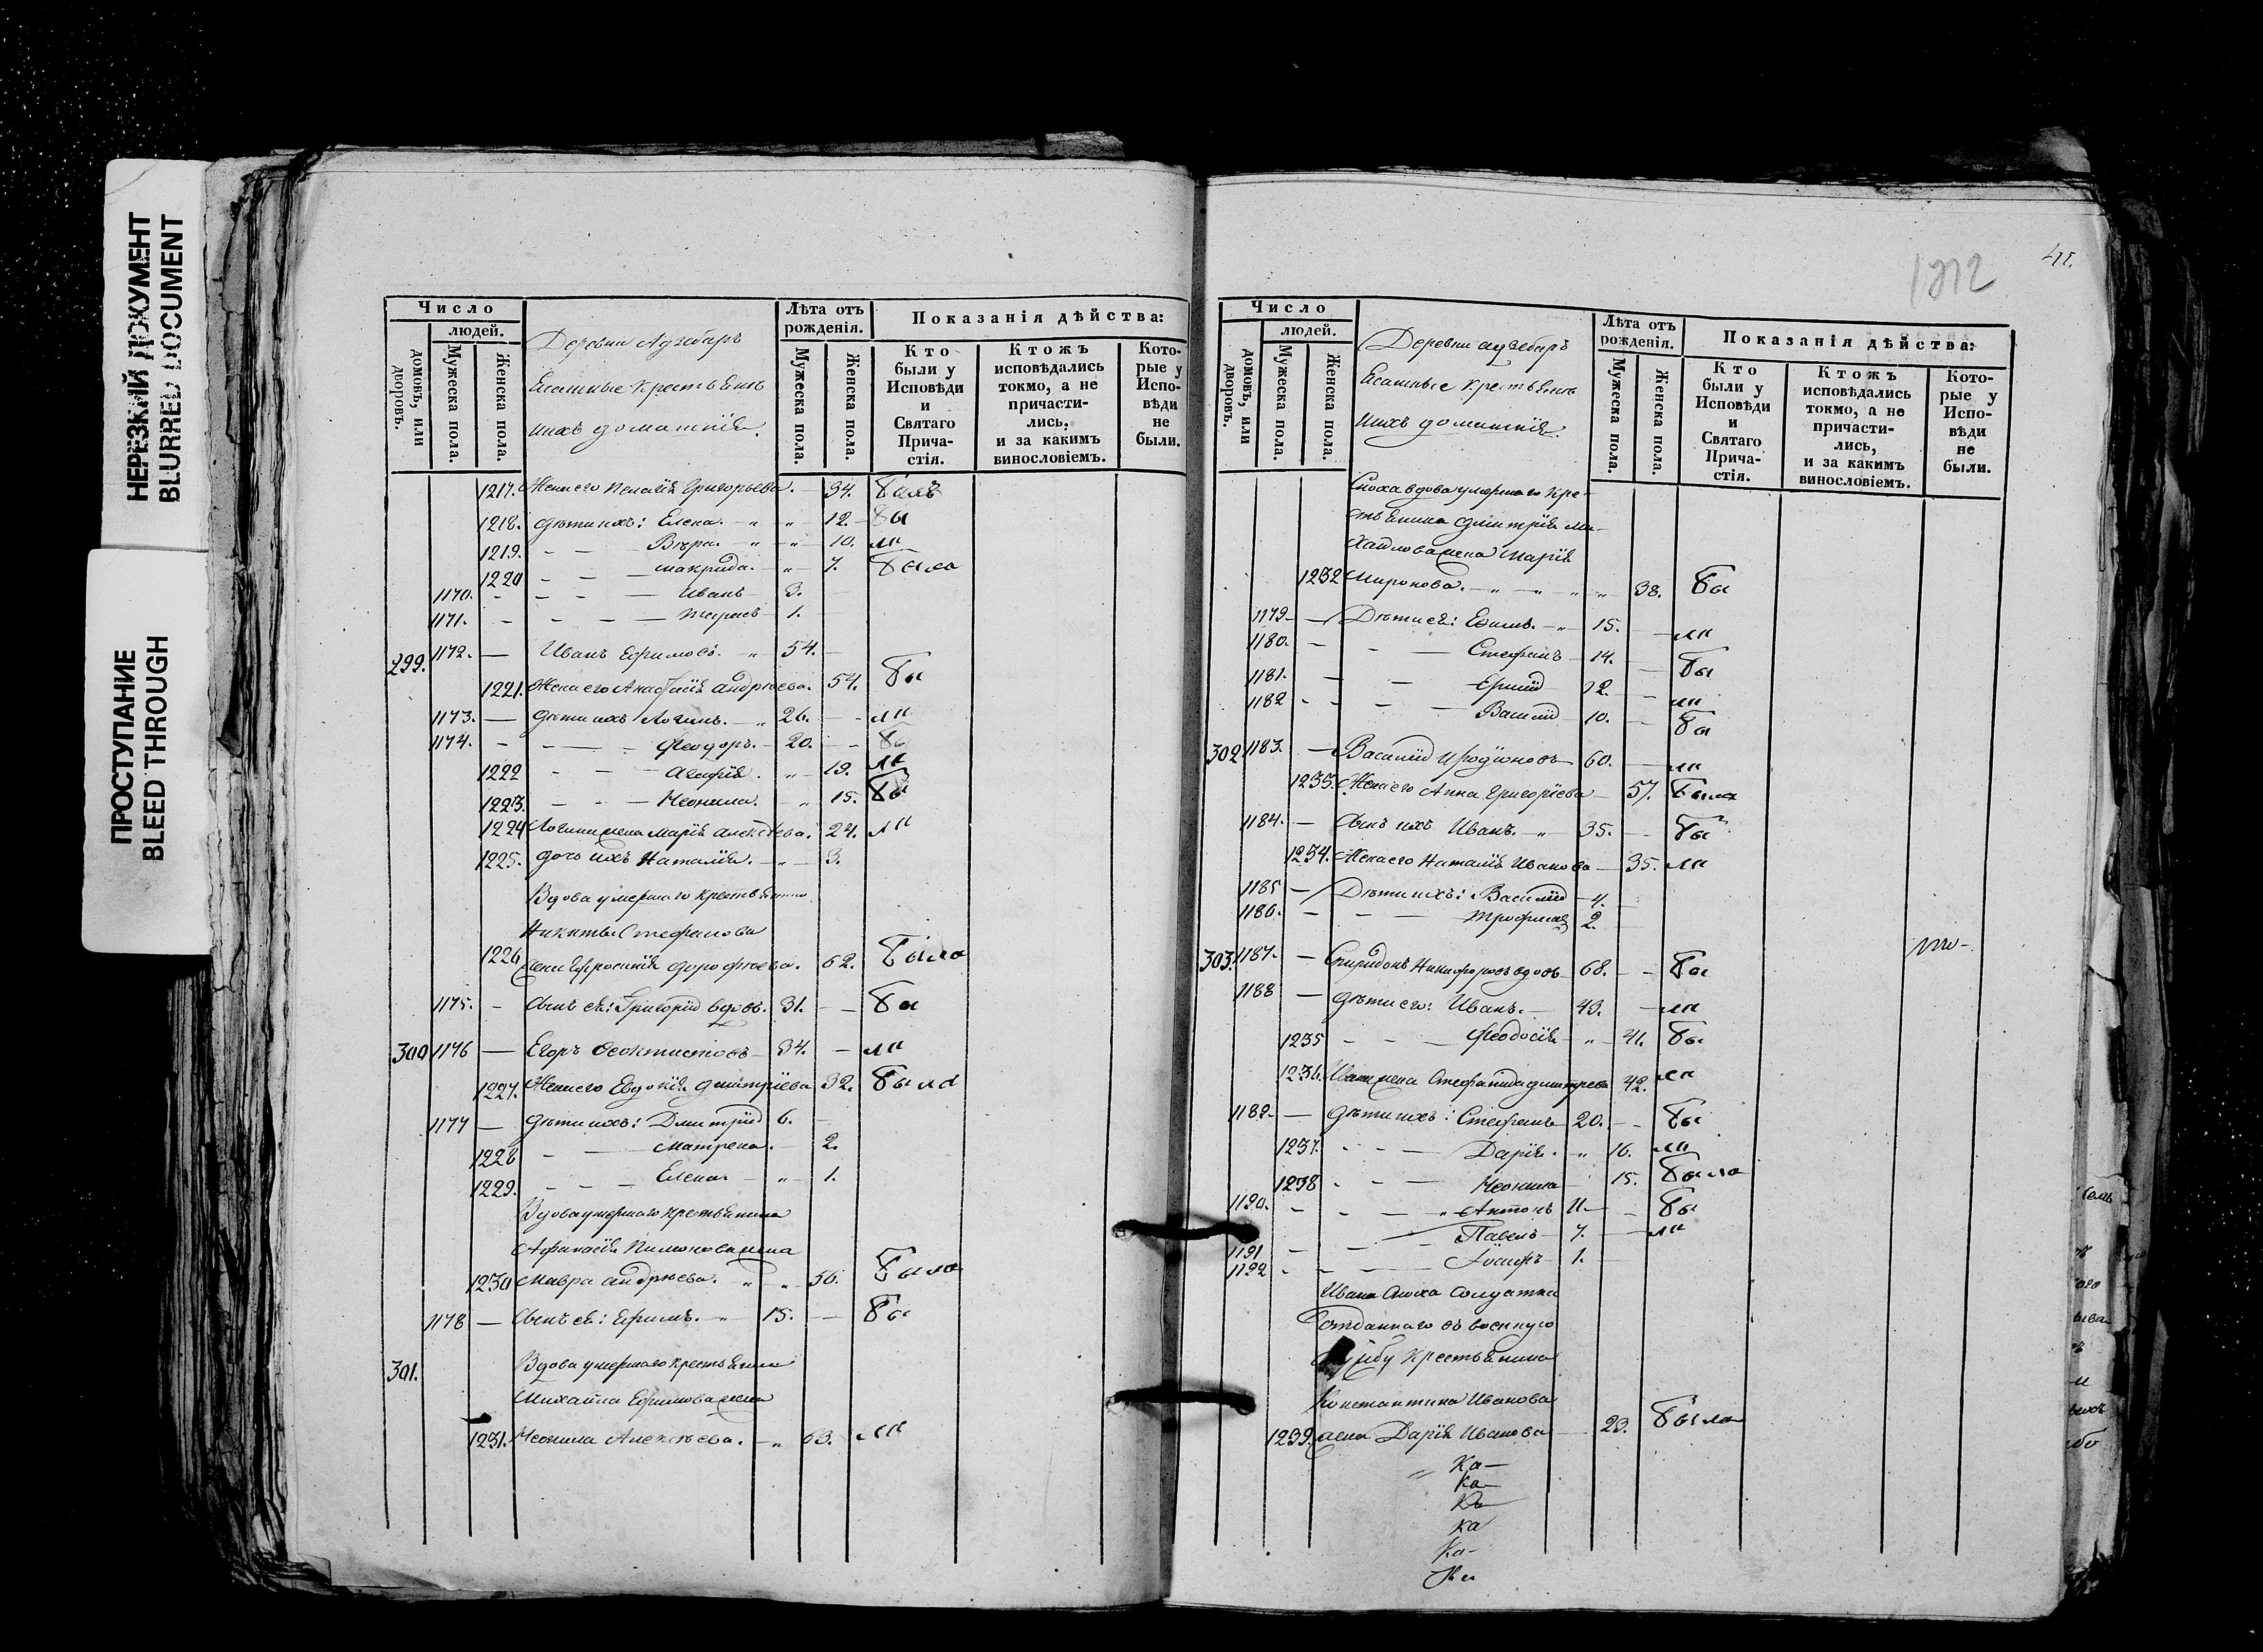 НЕРЕЗКИЙ ДОКУМЕНТ
BLURRED DOCUMENT
ПРОСТУПАНИЕ
BLEED THROUGH
Число
людей.
домовъ, или дворовъ.
Мужеска пола.
Женска пола.
Деревни
крестьяне
ихъ домашнія.
Лѣта отъ рожденія.
Мужеска пола.
Женска пола.
Показанія дѣйства:
Кто были у Исповѣди и Святаго Прича-стія.
Ктожъ исповѣдались токмо, а не причасти-лись, и за какимъ винословіемъ.
Кото-рые у Испо-вѣди не были.
1217. Жена его Пелагія Григорьева. 34.
1218. дѣти ихъ: Елена. 12. бы
1219. Вѣра. 10. ли
1220 Макрида. 7. была
1170. Иванъ 3.
1171. 1.
299. 1172. Иванъ Ефимовъ. 54.
1221. Жена его Анастасія Андрѣева. 54. бы
1173. дѣти ихъ Логинъ. 26. ли
1174. Феодоръ. 20. бы
1222 Агафія. 19. ли
1223. Неонила. 15. бы
1224 Логина жена Марія Алексѣева. 24. ли
1225. дочь ихъ Наталія. 3.
Вдова умершаго крестьянина
Никиты Стефанова
1226 жена Ефросинія Дорофѣева. 62. была
1175. сынъ ея: Григорій вдовъ. 31. бы
300 1176 Егоръ Феоктистовъ 34. ли
1227. Жена его Евдокія Дмитріева 32. была
1177 дѣти ихъ: Дмитрій 6.
1228 Матрена. 2.
1229. Елена. 1.
Вдова умершаго крестьянина
жена
1230 Мавра Андрѣева. 56. была
1178 сынъ ея: Ефимъ. 15. бы
301. Вдова умершаго крестьянина
Михаила Ефимова жена
1231. Неонила Алексѣева. 63. ли
1212
Число
людей.
домовъ, или дворовъ.
Мужеска пола.
Женска пола.
Деревни
крестьяне
ихъ домашнія.
Лѣта отъ рожденія.
Мужеска пола.
Женска пола.
Показанія дѣйства:
Кто были у Исповѣди и Святаго Прича-стія.
Ктожъ исповѣдались токмо, а не причасти-лись, и за какимъ винословіемъ.
Кото-рые у Испо-вѣди не были.
Сноха вдова умершаго кре-
стьянина Дмитрія Ми-
хайлова жена Марія
1232 Миронова. 38. бы
1179 Дѣти ея: Ефимъ. 15. ли
1180. Стефанъ 14. бы
1181. 12. ли
1182 Василій 10. бы
302 1183. Василій Иродіоновъ 60. ли
1233. Жена его Анна Григоріева 57. была
1184. сынъ ихъ Иванъ. 35. бы
1234. Жена его Наталія Иванова 35. ли
1185 Дѣти ихъ: Василій 4.
1186. Трофимъ 2.
303. 1187. Спиридонъ Никифоровъ вдовъ 68. бы
1188 дѣти его: Иванъ. 43. ли
1235 Феодосія 41. бы
1236. Ивана жена Стефанида Дмитрева 42. ли
1189. дѣти ихъ: Стефанъ 20. бы
1237. Дарія. 16. ли
1238 Неонила 15. была
1190. Антонъ 11. бы
1191 Павелъ 7. ли
1192 Іосифъ 1.
Ивана сноха солдатка
отданнаго въ военную
службу крестьянина
Константина Иванова
1239. жена Дарія Иванова 23. была